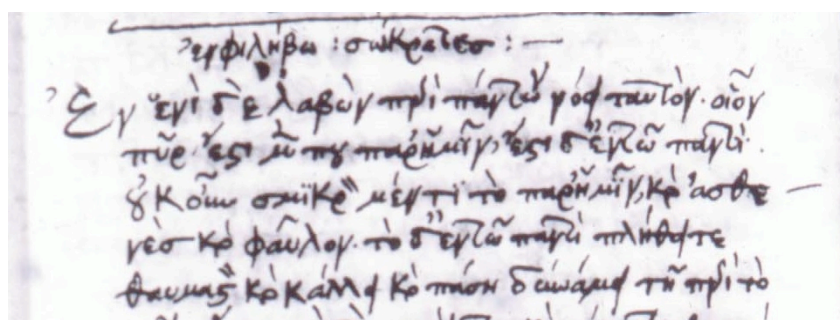 ἐν φιλήβω : σώκρατες : —
Ἐν ἑνὶ δὲ λαβὼν περὶ πάντων νόει ταυτόν · οἷον
πῦρ ἔστι μέν που παρ' ἡμῖν, ἔστι δ' ἐν τῶ παντί .
οὐκοῦν σμικρὸν μέν τι τὸ παρ' ἡμῖν, καὶ ἀσθε –
νὲσ καὶ φαῦλον · τὸ δ' ἐν τῶ παντὶ πλήθει τε
θαυμαστὸν καὶ κάλλει καὶ πάση δυνάμει τῆ περὶ τὸ